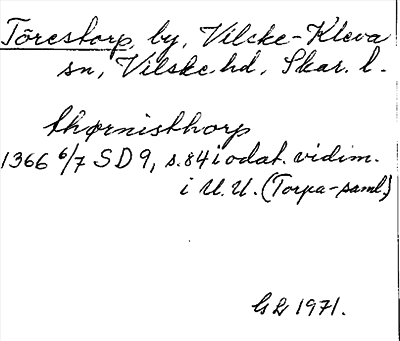 Törestorp, by, Vilcke-Kleva
sn, Vilske hd, Skar. l.
thørnisthorp
1366 6/7 SD9, s.84 i odat. vidim.
i U.U. (Torpa-saml.)
GL 1971.